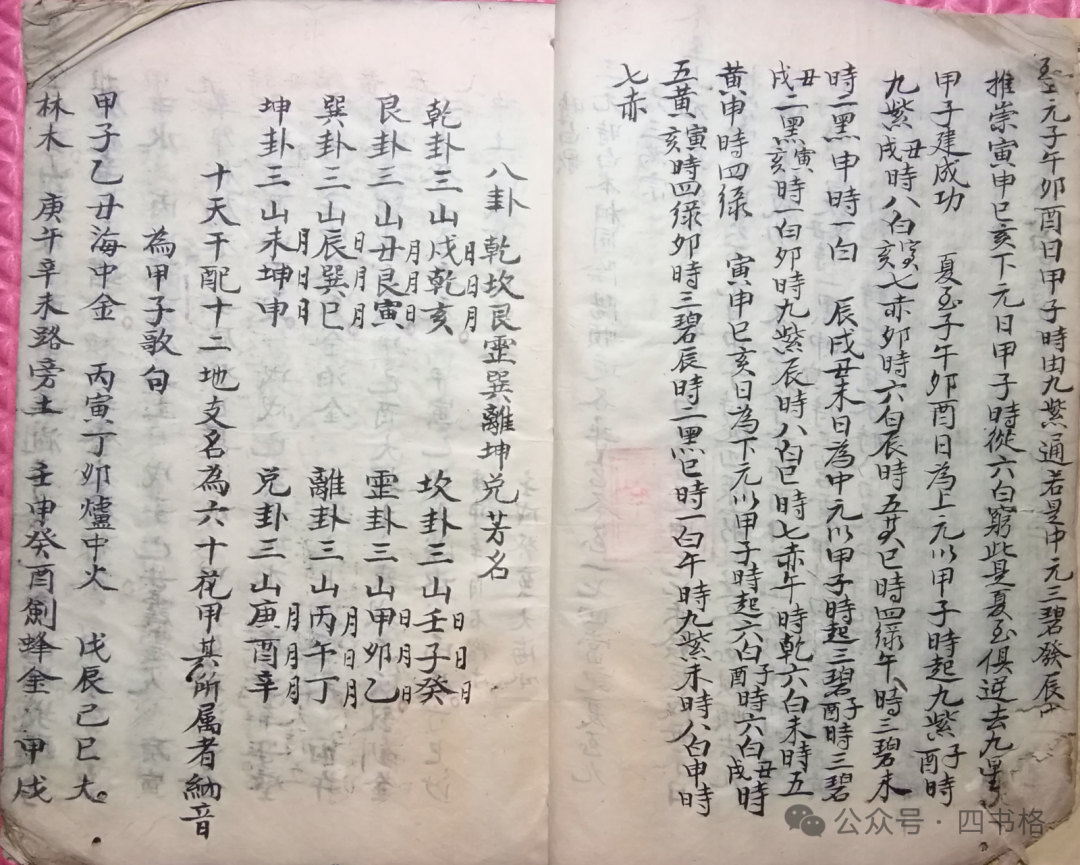 元子午卯酉日甲子時由九紫通若是中元三碧發辰
推崇寅申巳亥下元日甲子時從六白窮此是夏至俱逆去九星
甲子建成功　夏至子午卯酉日為上元以甲子時起九紫酉子時
九紫戌丑時八白亥寅七赤卯時六白辰時五黄巳時四綠午時三碧未
時二黑申時一白　辰戌丑未日為中元以甲子時起三碧酉子時三碧
戌丑二黑亥寅時一白卯時九紫辰時八白巳時七赤午時乾六白未時五
黄申時四綠　寅申巳亥日為下元以甲子時起六白酉子時六白戌丑時
五黄亥寅時四綠卯時三碧辰時二黑巳時一白午時九紫未時八白申時
七赤
八卦　乾坎艮霊巽離坤兑芳名
乾卦三山戌乾亥　坎卦三山壬子癸
月日月　日日日
艮卦三山丑艮寅　霊卦三山甲卯乙
月月日　日月日
巽卦三山辰巽巳　離卦三山丙午丁
日月月　月日月
坤卦三山未坤申　兑卦三山庚酉辛
月日日　月月月
十天干配十二地支名為六十花甲其所属者納音
為甲子歌句
甲子乙丑海中金　丙寅丁卯爐中火　戊辰己巳大
林木　庚午辛未路旁土　壬申癸酉劍蜂金　甲戌
公众号·四书格